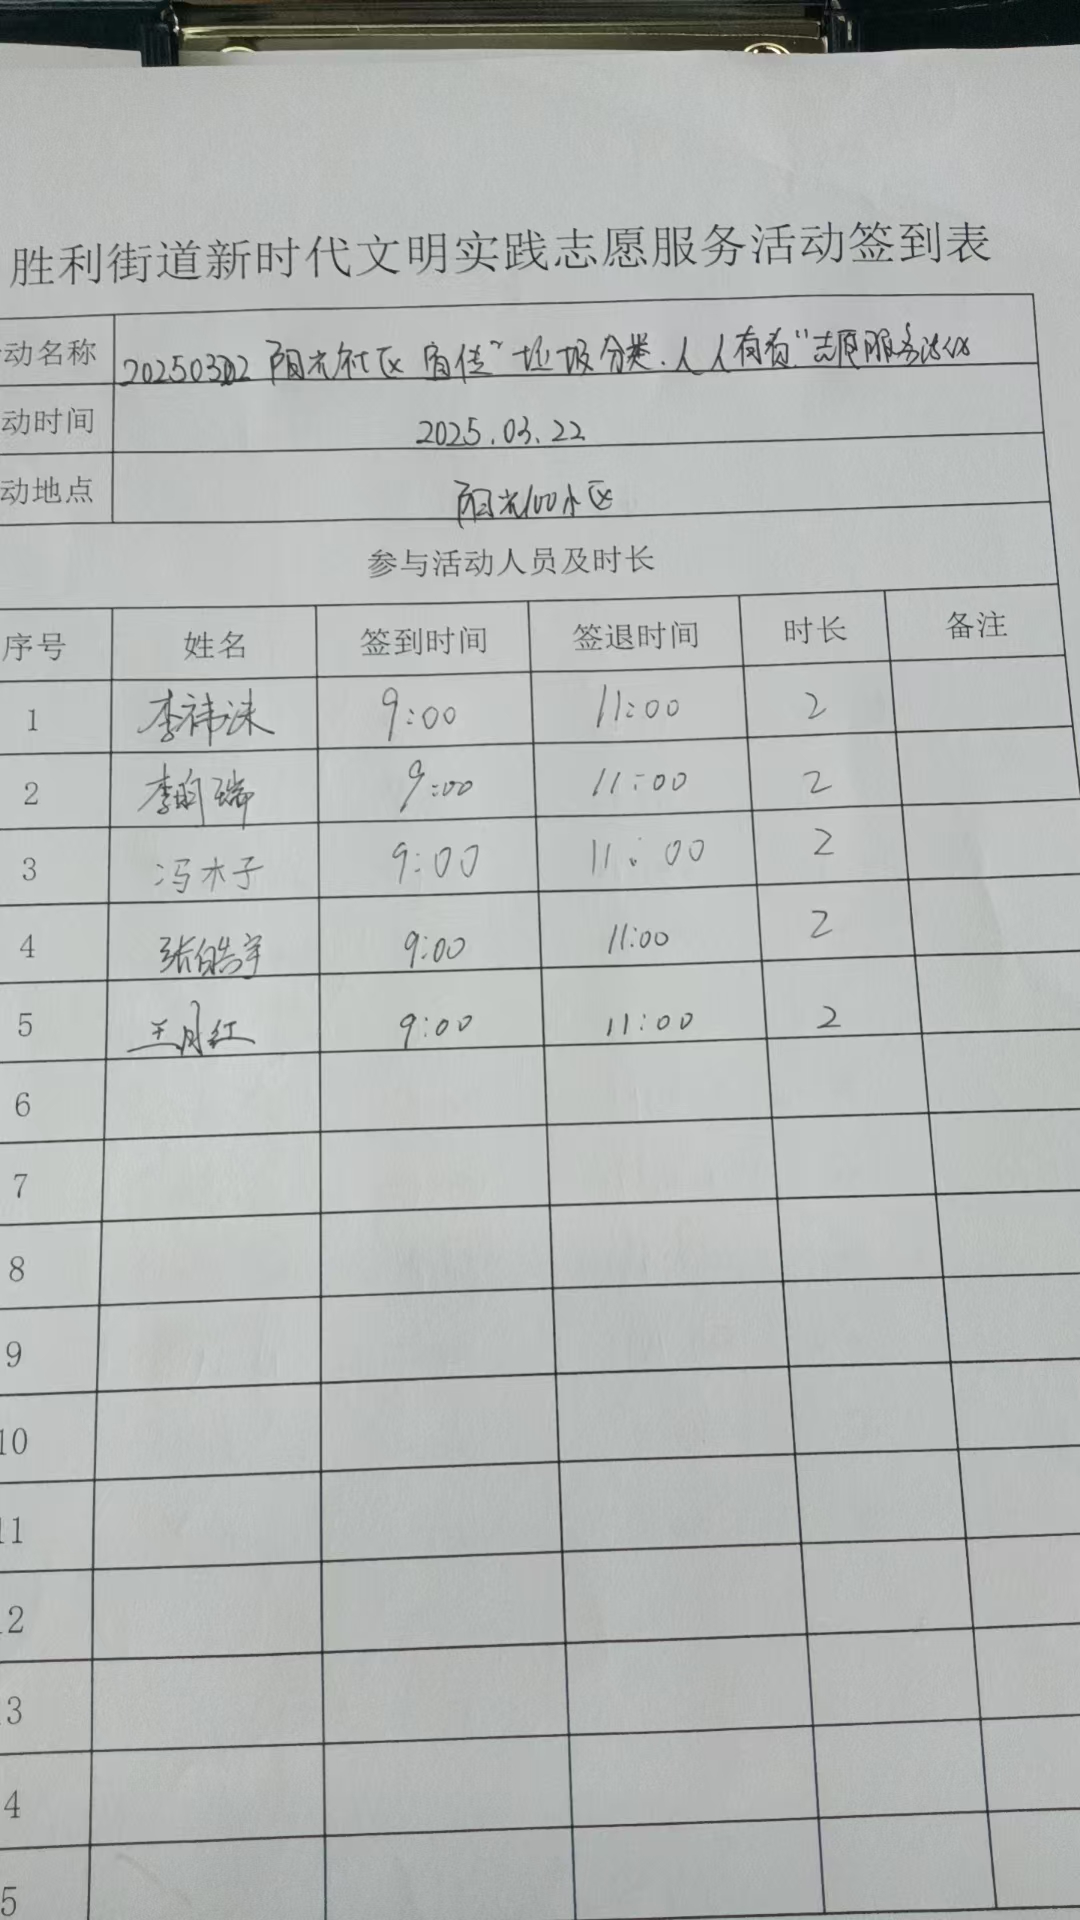 胜利街道新时代文明实践志愿服务活动签到表
动名称 20250322 阳光社区 宣传“垃圾分类.人人有责”志愿服务活动
动时间 2025.03.22
动地点 阳光100小区
参与活动人员及时长
序号 姓名 签到时间 签退时间 时长 备注
1 李祎洣 9:00 11:00 2
2 李昀瑞 9:00 11:00 2
3 冯木子 9:00 11:00 2
4 张皓宇 9:00 11:00 2
5 王月红 9:00 11:00 2
6
7
8
9
10
11
12
13
4
5